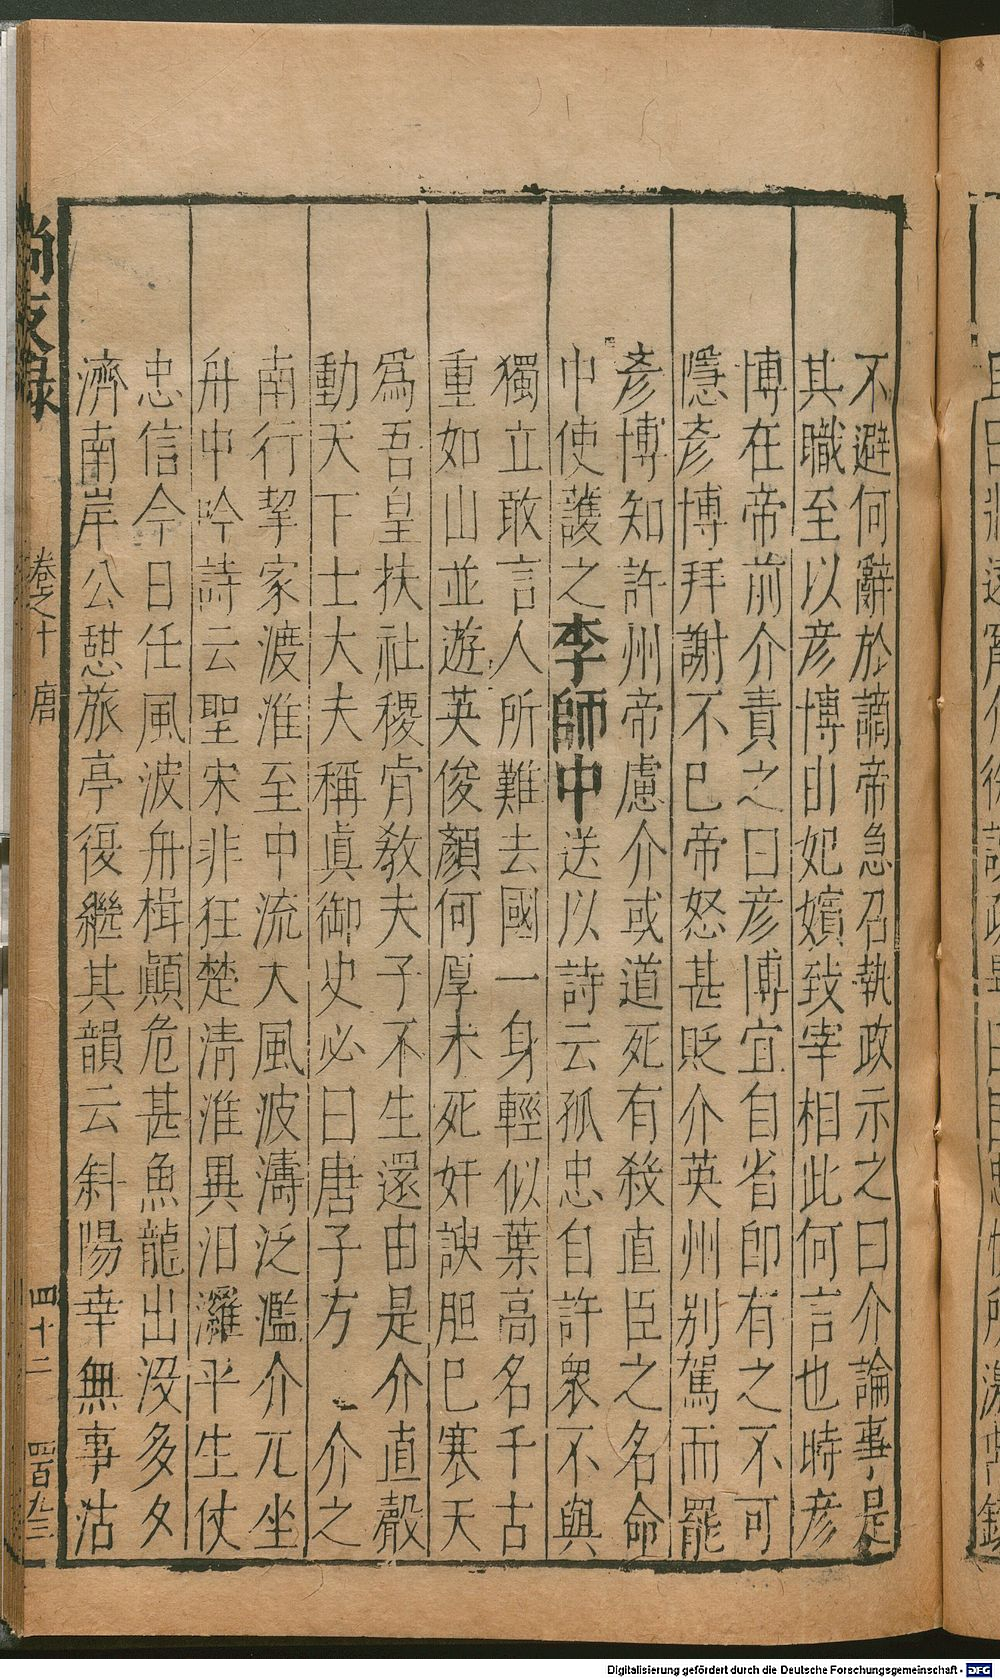 不避何辭於謫帝急召執政示之曰介論事是
其職至以彥博由妃嬪致宰相此何言也時彥
博在帝前介責之曰彥博宜自省即有之不可
隱彥博拜謝不已帝怒甚貶介英州别駕而罷
彥博知許州帝慮介或道死有殺直臣之名命
中使護之李師中送以詩云孤忠自許衆不與
獨立敢言人所難去國一身輕似葉高名千古
重如山並遊英俊顏何厚未死奸諛胆已寒天
爲吾皇扶社稷肯教夫子不生還由是介直聲
動天下士大夫稱眞御史必曰唐子方 介之
南行挈家渡淮至中流大風波濤泛濫介兀坐
舟中吟詩云聖宋非狂楚清淮異汨灘平生仗
忠信今日任風波舟楫顚危甚魚龍出没多夕
濟南岸公憇旅亭復繼其韻云斜陽幸無事沽
尚友錄 卷之十 唐 四十二 四百九三
Digitalisierung gefördert durch die Deutsche Forschungsgemeinschaft - DFG